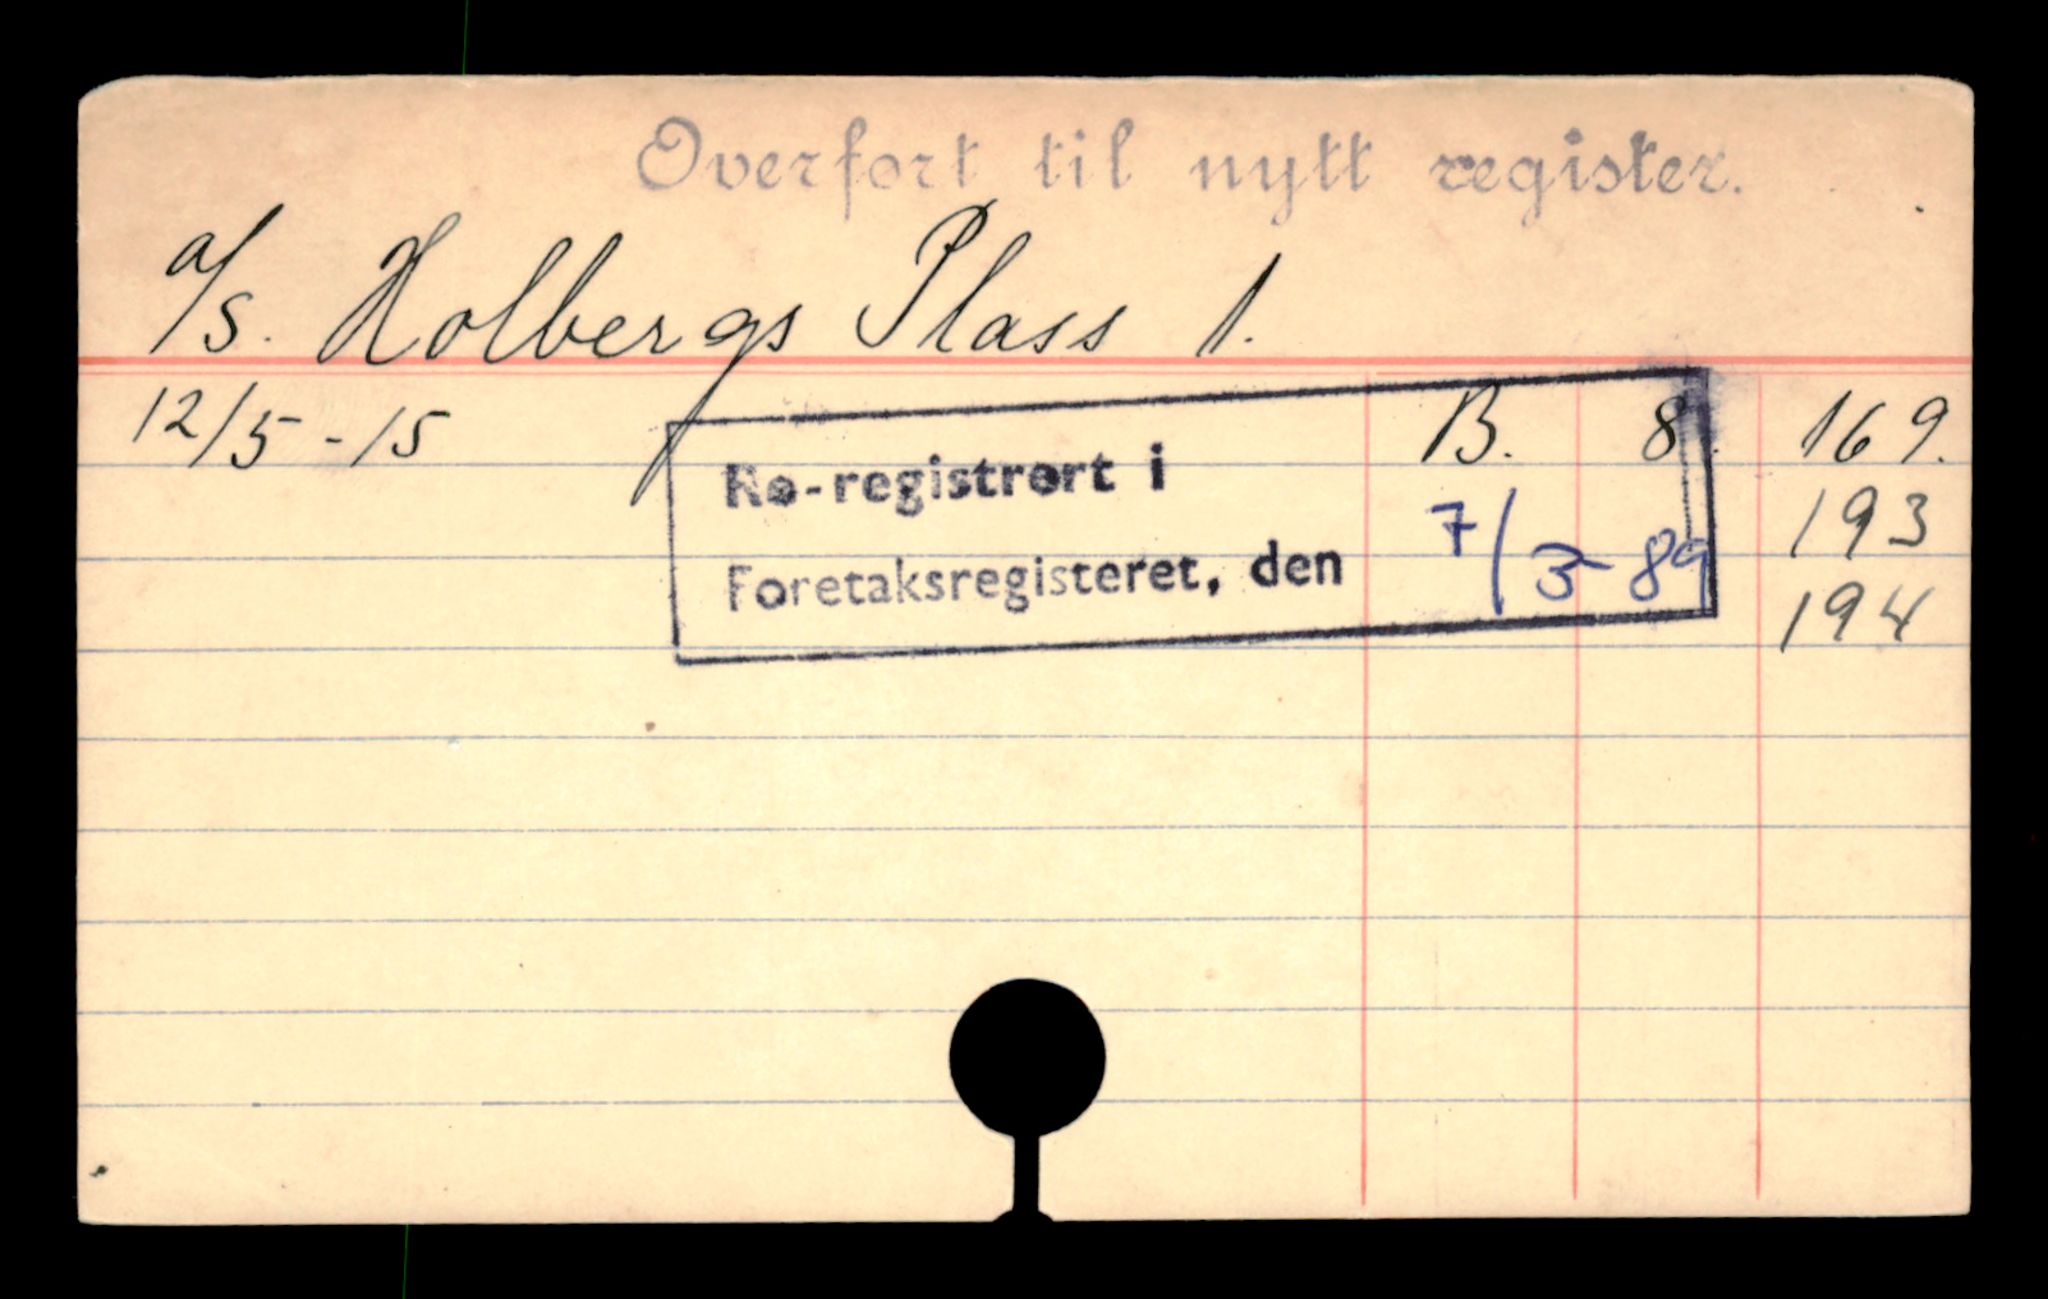 Overført til nytt register.
a/s. Holbergs Plass 1.
12/5-15 B. 8. 169.
Re-registrert i
193
Foretaksregisteret, den 7/3-89
194